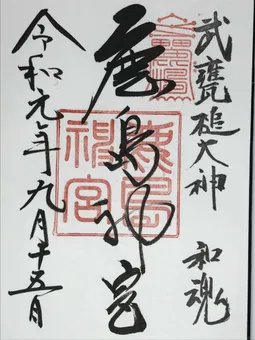 武甕槌大神 和魂
鹿島神宮
令和元年九月十五日
鹿島
神宮